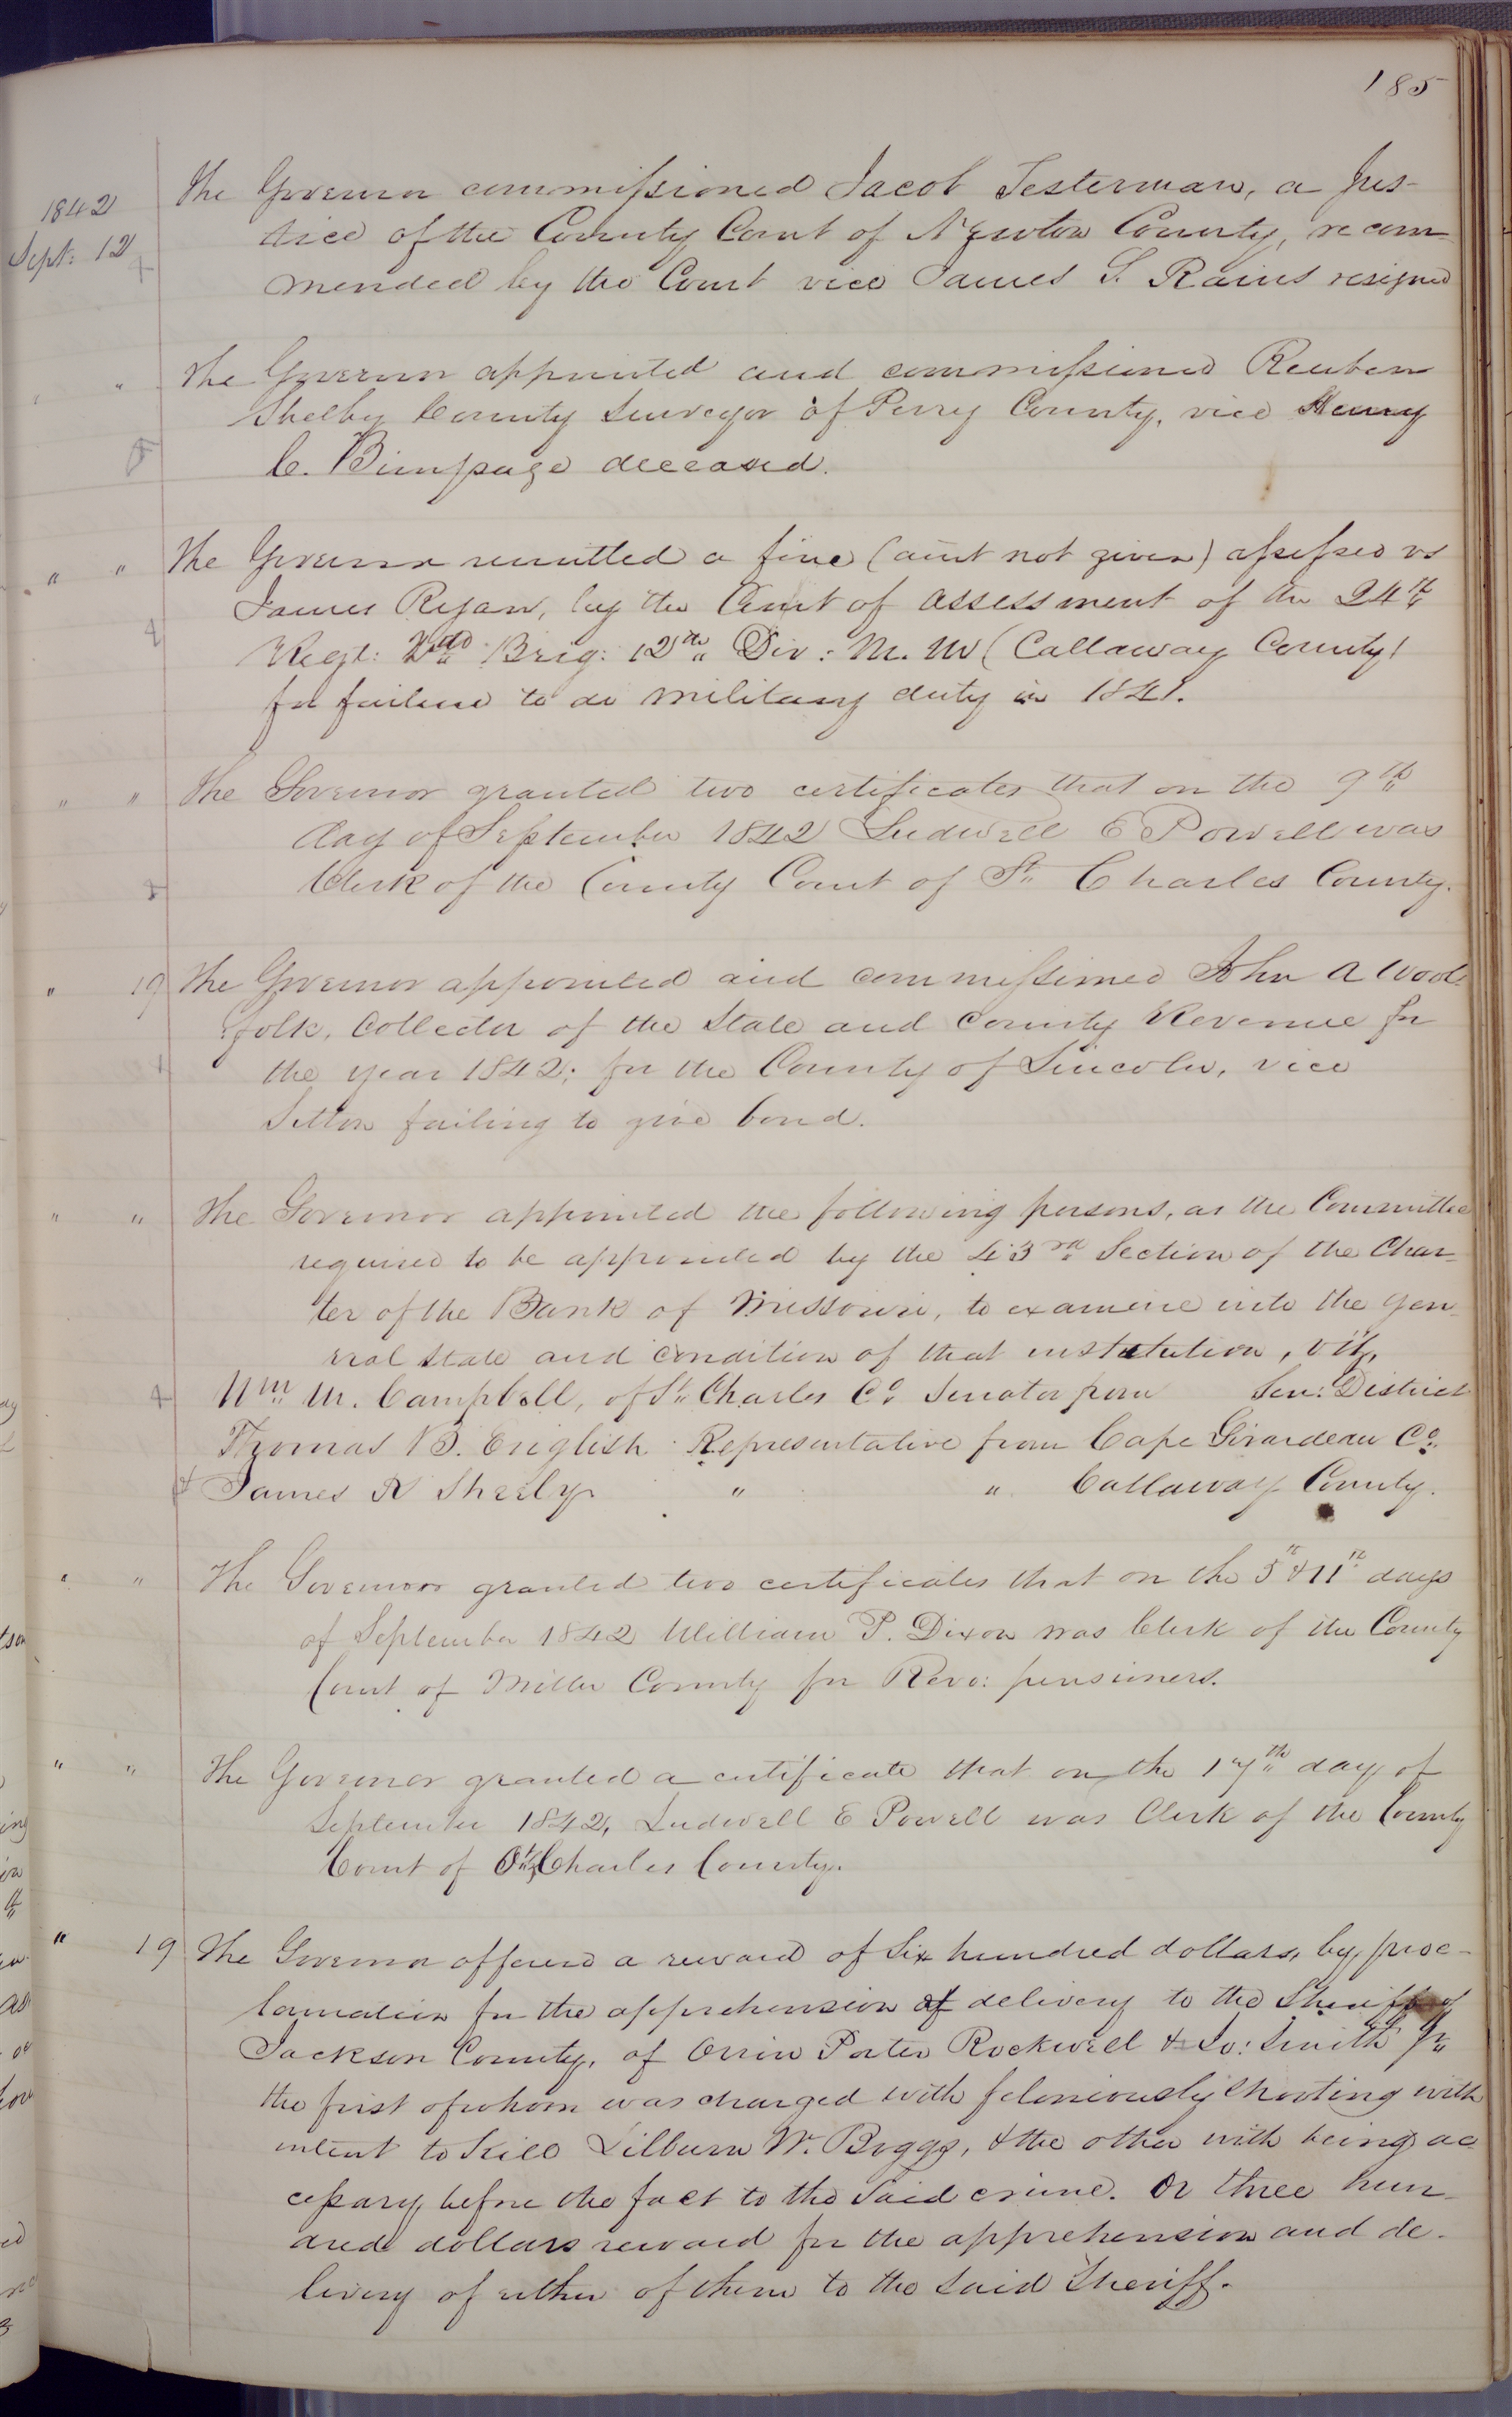 185
1842
Sept: 12
The Governor commissioned Jacob Testerman, a Jus-
tice of the County Court of Newton County, recom-
mended by the Court vice James S. Rains resigned
" The Governor appointed and commissioned Reuben
Shelby County Surveyor of Perry County, vice Henry
C. Bimpage deceased.
" " The Governor remitted a fine (amt not given) assessed vs
James Ryan, by the Court of assessment of the 24th
Regt: 2nd Brig: 12th Div: M. M (Callaway County)
for failure to do military duty in 1841.
" " The Governor granted two certificates that on the 9th
day of September 1842 Ludwell E Powell was
Clerk of the County Court of St Charles County.
" 19 The Governor appointed and commissioned John A Wool-
folk, Collector of the State and County Revenue for
the year 1842; for the County of Lincoln, vice
Sitton failing to give bond.
" " The Governor appointed the following persons, as the Committee
required to be appointed by the 43rd Section of the Char-
ter of the Bank of Missouri, to examine into the gen-
eral state and condition of that institution, viz,
Wm M. Campbell, of St Charles Co Senator from Sen: District
Thomas B. English Representative from Cape Girardeau Co.
& James N Sheely " " Callaway County.
" " The Governor granted two certificates that on the 5th & 11th days
of September 1842 William P. Dixon was Clerk of the County
Court of Miller County for Revo: pensioners.
" " The Governor granted a certificate that on the 17th day of
September 1842, Ludwell E Powell was Clerk of the County
Court of St Charles County.
" 19 The Governor offered a reward of Six hundred dollars, by proc-
lamation for the apprehension & delivery to the Sheriff of
Jackson County, of Orrin Porter Rockwell & Jo: Smith Jr
the first of whom was charged with feloniously Shooting with
intent to kill Lilburn W. Boggs, & the other with being ac-
cessary before the fact to the said crime. Or three hun-
dred dollars reward for the apprehension and de-
livery of either of them to the said Sheriff.